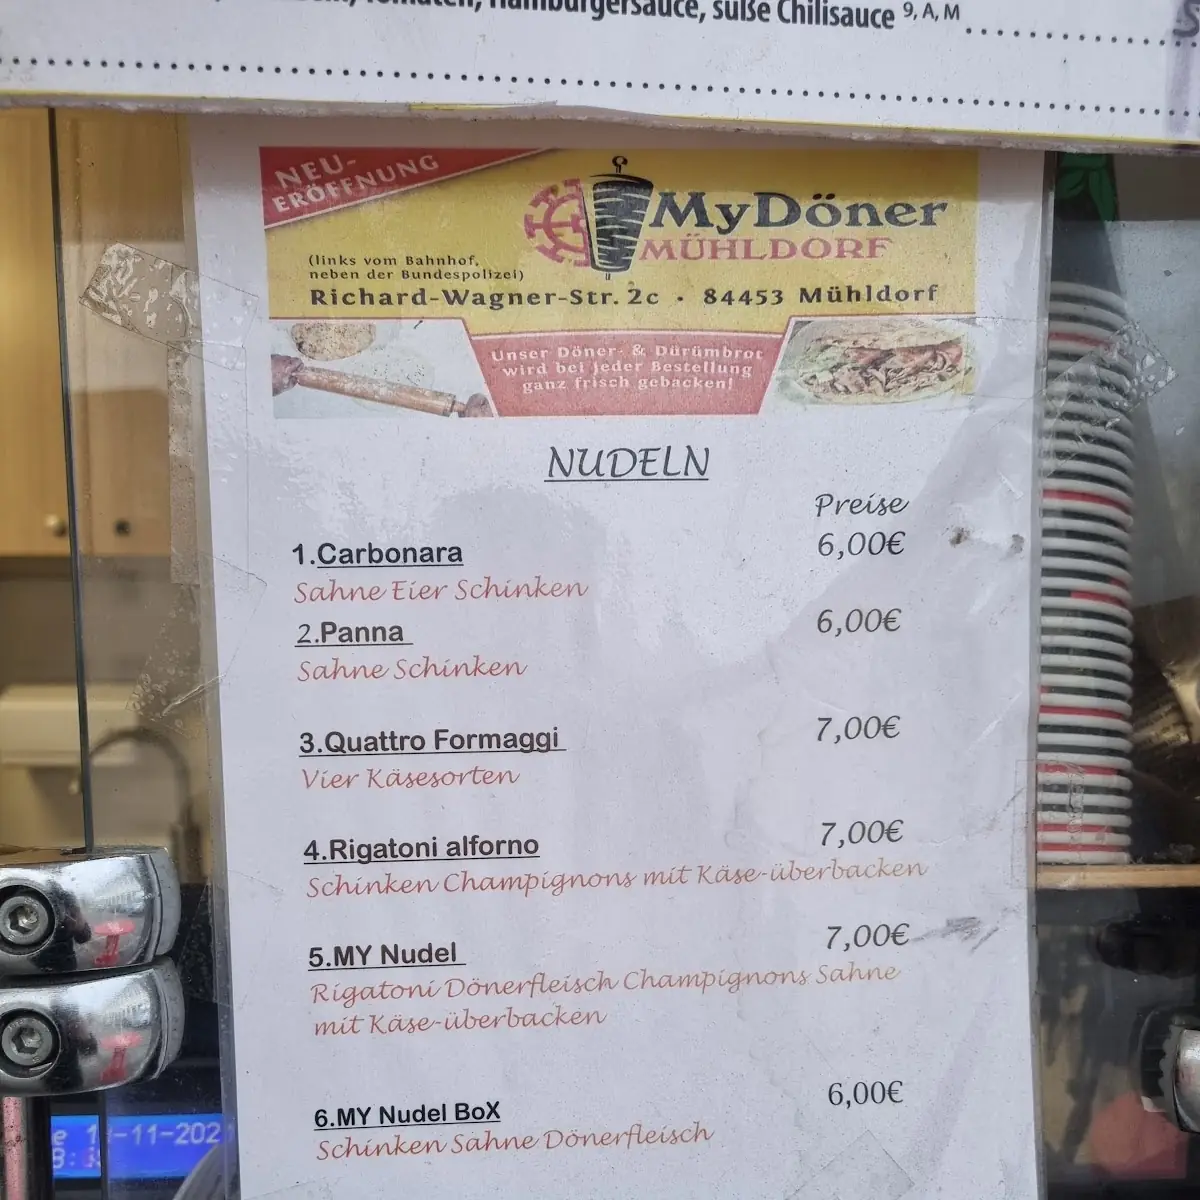 Hamburgersauce, süße Chilisauce 9, A, M
NEU-
ERÖFFNUNG
MyDöner
MÜHLDORF
(links vom Bahnhof,
neben der Bundespolizei)
Richard-Wagner-Str. 2c · 84453 Mühldorf
Unser Döner- & Dürümbrot
wird bei jeder Bestellung
ganz frisch gebacken!
NUDELN
Preise
1.Carbonara 6,00€
Sahne Eier Schinken
2.Panna 6,00€
Sahne Schinken
3.Quattro Formaggi 7,00€
Vier Käsesorten
4.Rigatoni alforno 7,00€
Schinken Champignons mit Käse-überbacken
5.MY Nudel 7,00€
Rigatoni Dönerfleisch Champignons Sahne
mit Käse-überbacken
6.MY Nudel BoX 6,00€
Schinken Sahne Dönerfleisch